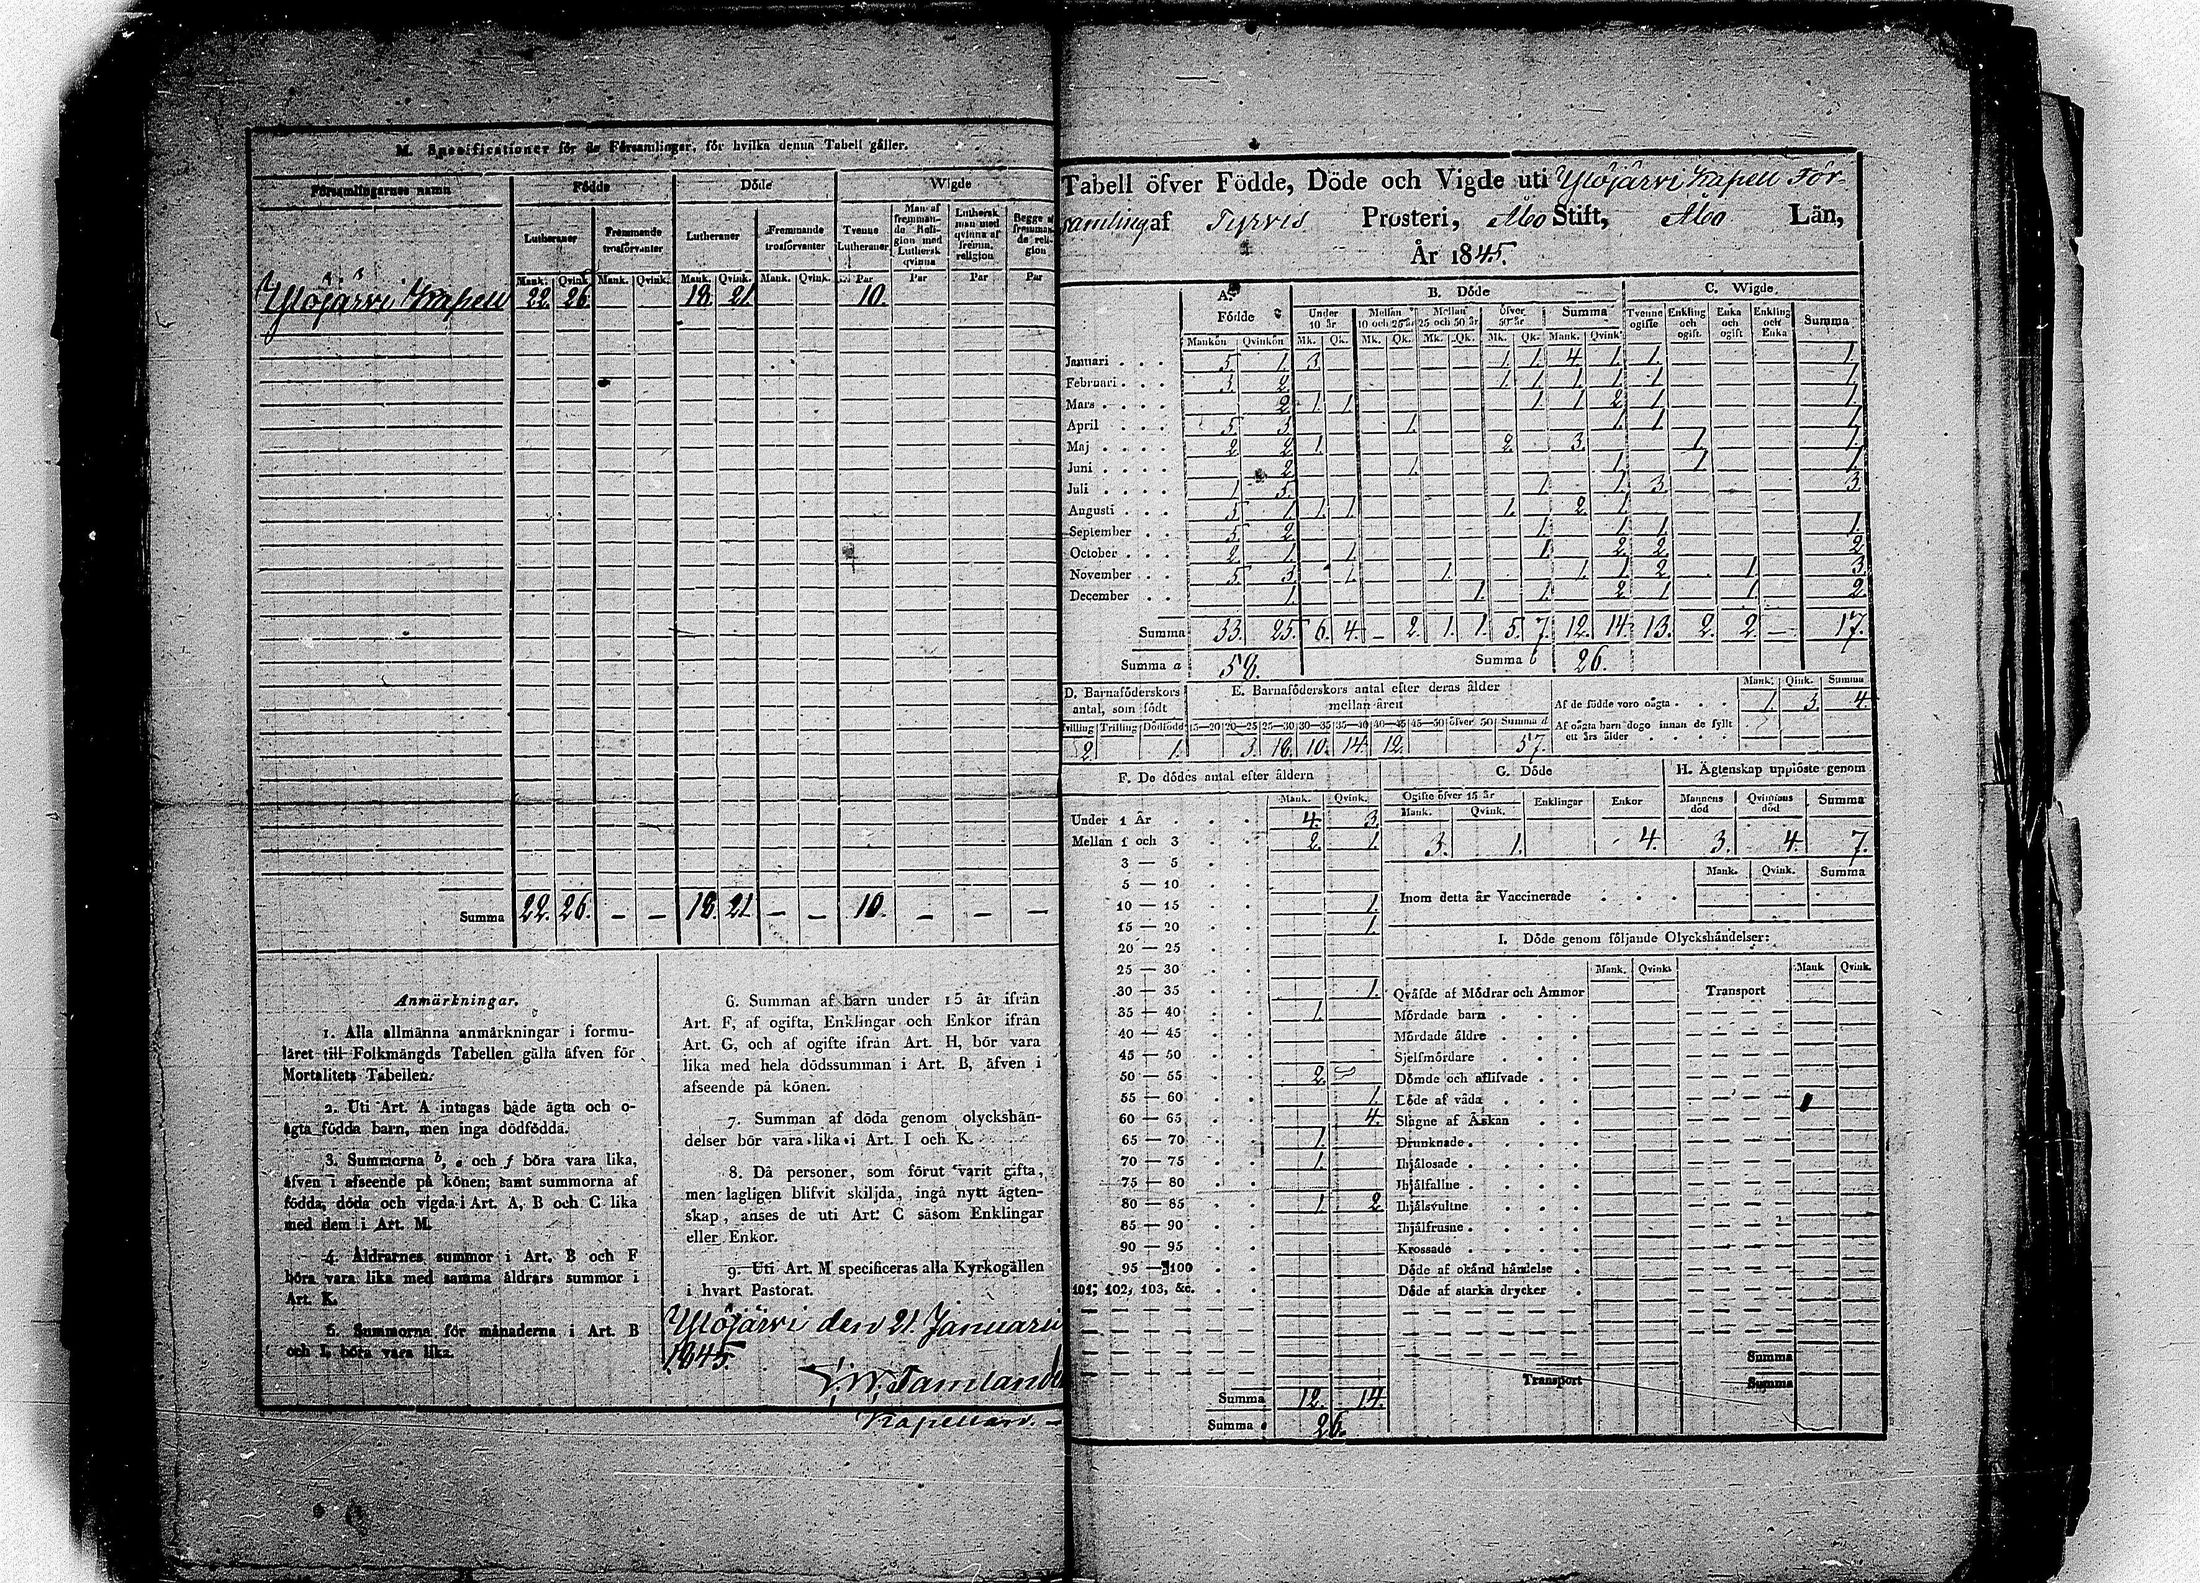 M. Specificationer för de Församlingar, för hvilka denna Tabell gäller.
Församlingarnes namn Födde Döde Wigde
Lutheraner Fremmande trosförvanter Lutheraner Fremmande trosförvanter Tvenne Lutheraner Man af fremmande Religion med Luthersk qvinna Luthersk man med qvinna af fremm. religion Begge af fremmande religion
Mank. Qvink. Mank. Qvink. Mank. Qvink. Mank. Qvink. Par Par Par Par
Ylöjärvi Kapell 22. 26. 18. 21. 10.
Summa 22. 26. — — 18. 21. — — 10. — — —
Anmärkningar.
1. Alla allmänna anmärkningar i formu-
läret till Folkmängds Tabellen gälla äfven för
Mortalitets Tabellen.
2. Uti Art. A intagas både ägta och o-
ägta födda barn, men inga dödfödda.
3. Summorna b, e och f böra vara lika,
äfven i afseende på könen; samt summorna af
födda, döda och vigda i Art. A, B och C lika
med dem i Art. M.
4. Åldrarnes summor i Art. B och F
böra vara lika med samma åldrars summor i
Art. K.
5. Summorna för månaderna i Art. B
och L böra vara lika.
6. Summan af barn under 15 år ifrån
Art. F, af ogifta, Enklingar och Enkor ifrån
Art. G, och af ogifte ifrån Art. H, bör vara
lika med hela dödssumman i Art. B, äfven i
afseende på könen.
7. Summan af döda genom olyckshän-
delser bör vara lika i Art. I och K.
8. Då personer, som förut varit gifta,
men lagligen blifvit skiljda, ingå nytt ägten-
skap, anses de uti Art. C såsom Enklingar
eller Enkor.
9. Uti Art. M specificeras alla Kyrkogällen
i hvart Pastorat.
Ylöjärvi den 21 Januarii
1845.
Kapellan.
Tabell öfver Födde, Döde och Vigde uti Ylöjärvi Kapell För-
samling af Tyrvis Prosteri, Åbo Stift, Åbo Län,
År 1845.
A. Födde B. Döde C. Wigde
Under 10 år Mellan 10 och 25 år Mellan 25 och 50 år öfver 50 år Summa Tvenne ogifte Enkling och ogift Enka och ogift Enkling och Enka Summa
Mankön Qvinkön Mk. Qk. Mk. Qk. Mk. Qk. Mk. Qk. Mank. Qvink.
Januari 5. 1. 3. 1. 1. 4. 1. 1. 1.
Februari 3. 2. 1. 1. 1. 1. 1. 1.
Mars 2. 1. 1. 1. 1. 2. 1. 1.
April 5. 3. 1. 1. 1. 1.
Maj 2. 2. 1. 2. 3. 1. 1.
Juni 2. 1. 1. 1. 1.
Juli 1. 5. 1. 1. 3. 3.
Augusti 5. 1. 1. 1. 1. 2. 1.
September 5. 2. 1. 1. 1. 1.
October 2. 1. 1. 1. 2. 2. 2.
November 5. 3. 1. 1. 1. 1. 2. 1. 3.
December 1. 1. 1. 2. 1. 1. 2.
Summa 33. 25. 6. 4. — 2. 1. 1. 5. 7. 12. 14. 13. 2. 2. — 17.
Summa a 58. Summa b 26.
D. Barnaföderskors antal, som födt
Tvilling Trilling Dödfödd
2. 1.
E. Barnaföderskors antal efter deras ålder mellan åren
15—20 20—25 25—30 30—35 35—40 40—45 45—50 öfver 50 Summa d
3. 18. 10. 14. 12. 57.
Mank. Qink. Summa
Af de födde voro oägta 1. 3. 4.
Af oägta barn dogo innan de fyllt
ett års ålder
F. De dödes antal efter åldern
Mank. Qvink.
Under 1 År 4. 3.
Mellan 1 och 3 2. 1.
3 — 5
5 — 10
10 — 15 1.
15 — 20 1.
20 — 25
25 — 30
30 — 35 1.
35 — 40 1.
40 — 45
45 — 50
50 — 55 2.
55 — 60 1.
60 — 65 4.
65 — 70 1.
70 — 75 1.
75 — 80
80 — 85 1. 2
85 — 90
90 — 95
95 — 100
101, 102, 103, &c.
Summa 12. 14.
Summa 26.
G. Döde
Ogifte öfver 15 år Enklingar Enkor
Mank. Qvink.
3. 1. 4.
H. Ägtenskap upplöste genom
Mannens död Qvinnans död Summa
3. 4. 7.
Mank. Qvink. Summa
Inom detta år Vaccinerade
I. Döde genom följande Olyckshändelser:
Mank. Qvink. Mank Qvink.
Qväfde af Mödrar och Ammor Transport
Mördade barn
Mördade äldre
Sjelfmördare
Dömde och aflifvade
Döde af våda
Slagne af Åskan
Drunknade
Ihjälosade
Ihjälfallne
Ihjälsvultne
Ihjälfrusne
Krossade
Döde af okänd händelse
Döde af starka drycker
Summa
Transport Summa